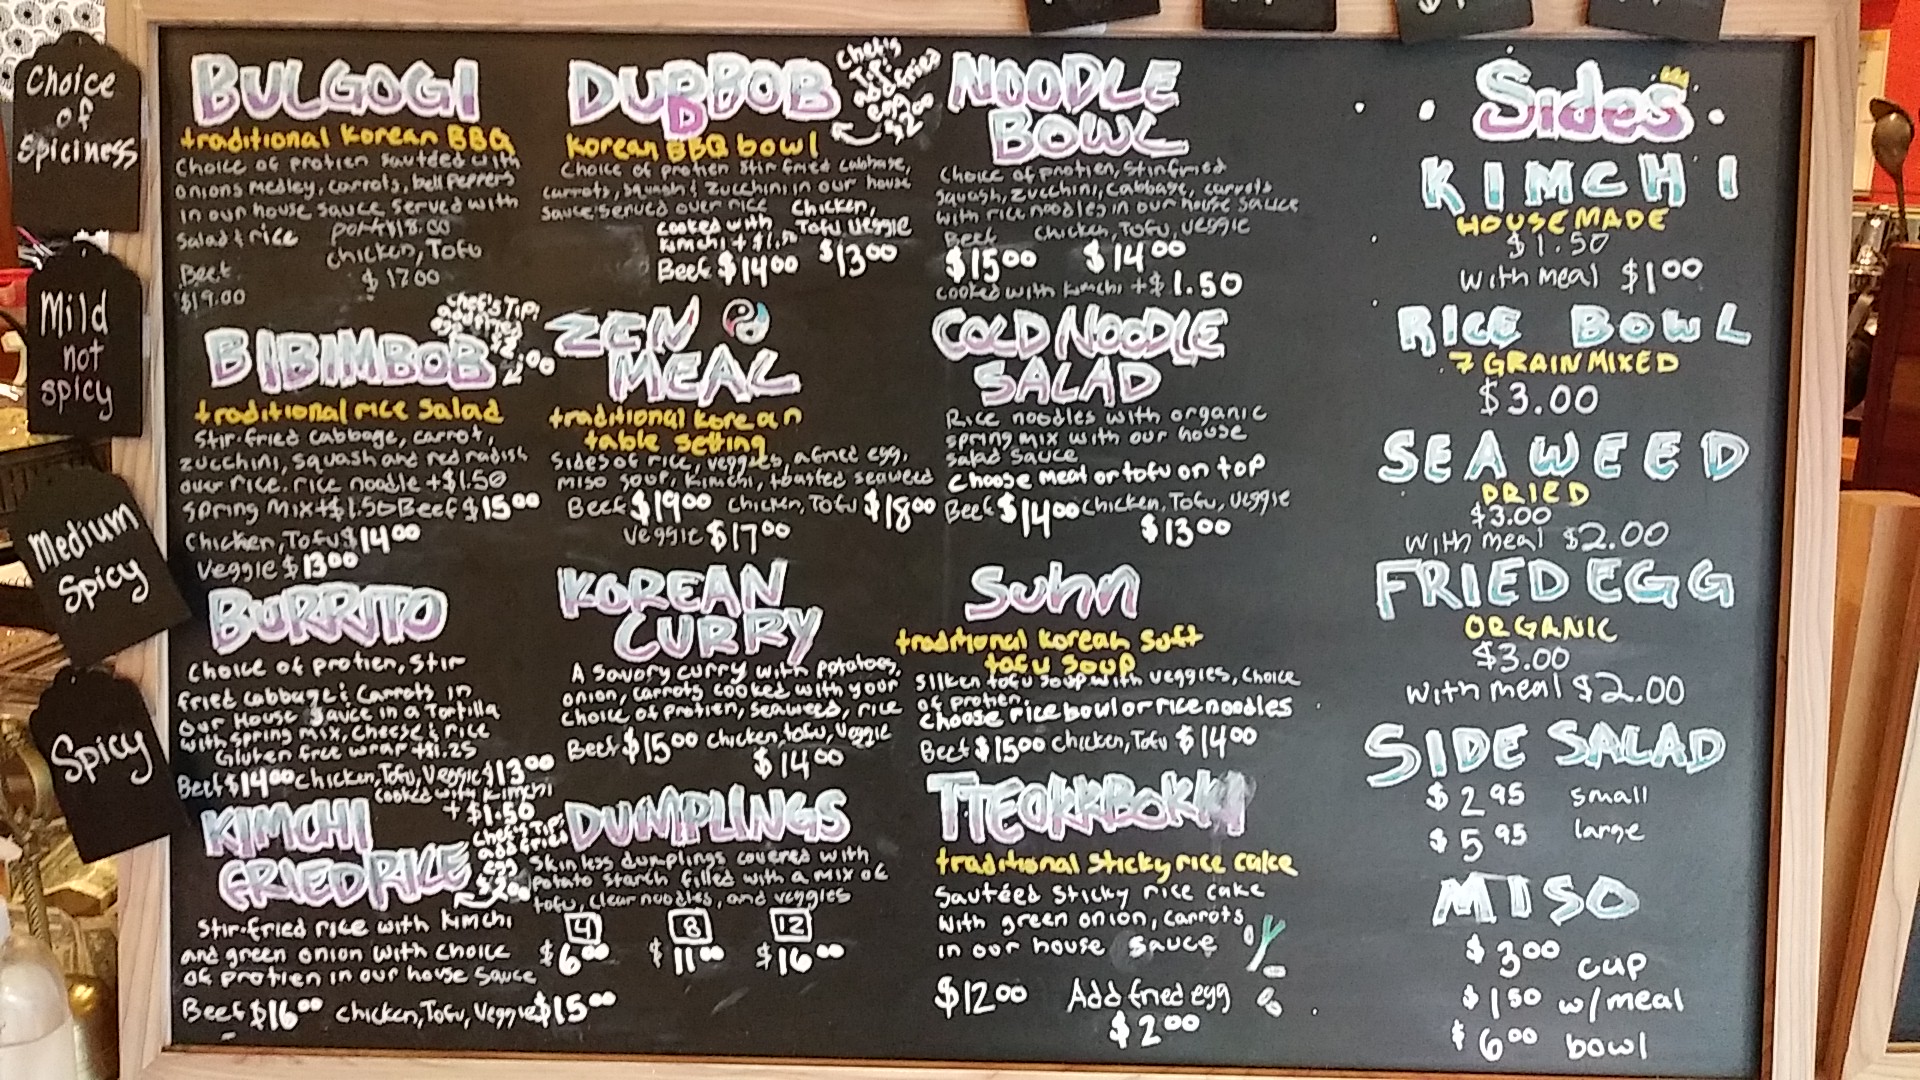 Choice
of
Spiciness
Mild
not
spicy
Medium
Spicy
Spicy
BULGOGI
traditional Korean BBQ
Choice of protien sautéed with
onions medley, carrots, bell peppers
in our house sauce served with
salad & rice
pork $18.00
chicken, Tofu
$17.00
Beef
$19.00
BIBIMBOB
Chef's TIP!
add fried
egg
$2.00
traditional rice salad
Stir-fried cabbage, carrot,
zucchini, squash and red radish
over rice. rice noodle +$1.50
Spring mix +$1.50 Beef $15.00
Chicken, Tofu $14.00
Veggie $13.00
BURRITO
choice of protien, stir
fried cabbage & carrots in
our House Sauce in a Tortilla
with spring mix, cheese & rice
Gluten free wrap +$1.25
Beef $14.00 chicken, Tofu, Veggie $13.00
cooked with kimchi
+ $1.50
KIMCHI
FRIED RICE
Chef's TIP!
add fried
egg
$2.00
Stir-fried rice with kimchi
and green onion with choice
of protien in our house sauce
Beef $16.00 chicken, Tofu, Veggie $15.00
DUBBOB
Chef's
TIP!
add fried
egg
$2.00
Korean BBQ bowl
Choice of protien stir fried cabbage,
carrots, squash & zucchini in our house
sauce served over rice
cooked with
kimchi + $1.50
Chicken,
Tofu Veggie
Beef $14.00 $13.00
ZEN
MEAL
traditional korean
table setting
sides of rice, veggies, a fried egg,
miso soup, kimchi, toasted seaweed
Beef $19.00 chicken, Tofu $18.00
Veggie $17.00
KOREAN
CURRY
A savory curry with potatoes,
onion, carrots cooked with your
choice of protien, seaweed, rice
Beef $15.00 chicken, tofu, Veggie
$14.00
DUMPLINGS
Skinless dumplings covered with
potato starch filled with a mix of
tofu, clear noodles, and veggies
4 8 12
$6.00 $11.00 $16.00
NOODLE
BOWL
Choice of protien, stirfried
squash, zucchini, cabbage, carrots
with rice noodles in our house sauce
Beef chicken, Tofu, veggie
$15.00 $14.00
cooked with kimchi +$1.50
COLD NOODLE
SALAD
Rice noodles with organic
spring mix with our house
salad sauce
choose meat or tofu on top
Beef $14.00 chicken, Tofu, Veggie
$13.00
Suhn
traditional Korean soft
tofu soup
Silken tofu soup with veggies, choice
of protien.
choose rice bowl or rice noodles
Beef $15.00 chicken, Tofu $14.00
TTEOKKBOKKI
traditional sticky rice cake
Sautéed sticky rice cake
with green onion, carrots
in our house sauce
$12.00 Add fried egg
$2.00
Sides
KIMCHI
HOUSE MADE
$1.50
with meal $1.00
RICE BOWL
7 GRAIN MIXED
$3.00
SEAWEED
DRIED
$3.00
with meal $2.00
FRIED EGG
ORGANIC
$3.00
with meal $2.00
SIDE SALAD
$2.95 small
$5.95 large
MISO
$3.00 cup
$1.50 w/meal
$6.00 bowl